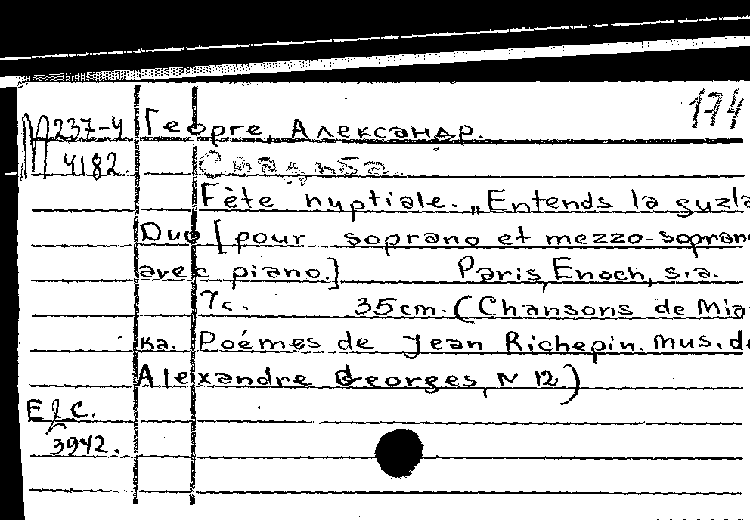 174
М237-4 Георге, Александр.
4182 Свадьба.
Fête nuptiale. „Entends la guzla
Duo [pour soprano et mezzo-sopran
avec piano.] Paris, Enoch, s.a.
7с. 35cm. (Chansons de Mia
ка. Poémes de Jean Richepin. Mus. de
Alexandre Georges, N 12.)
3942.